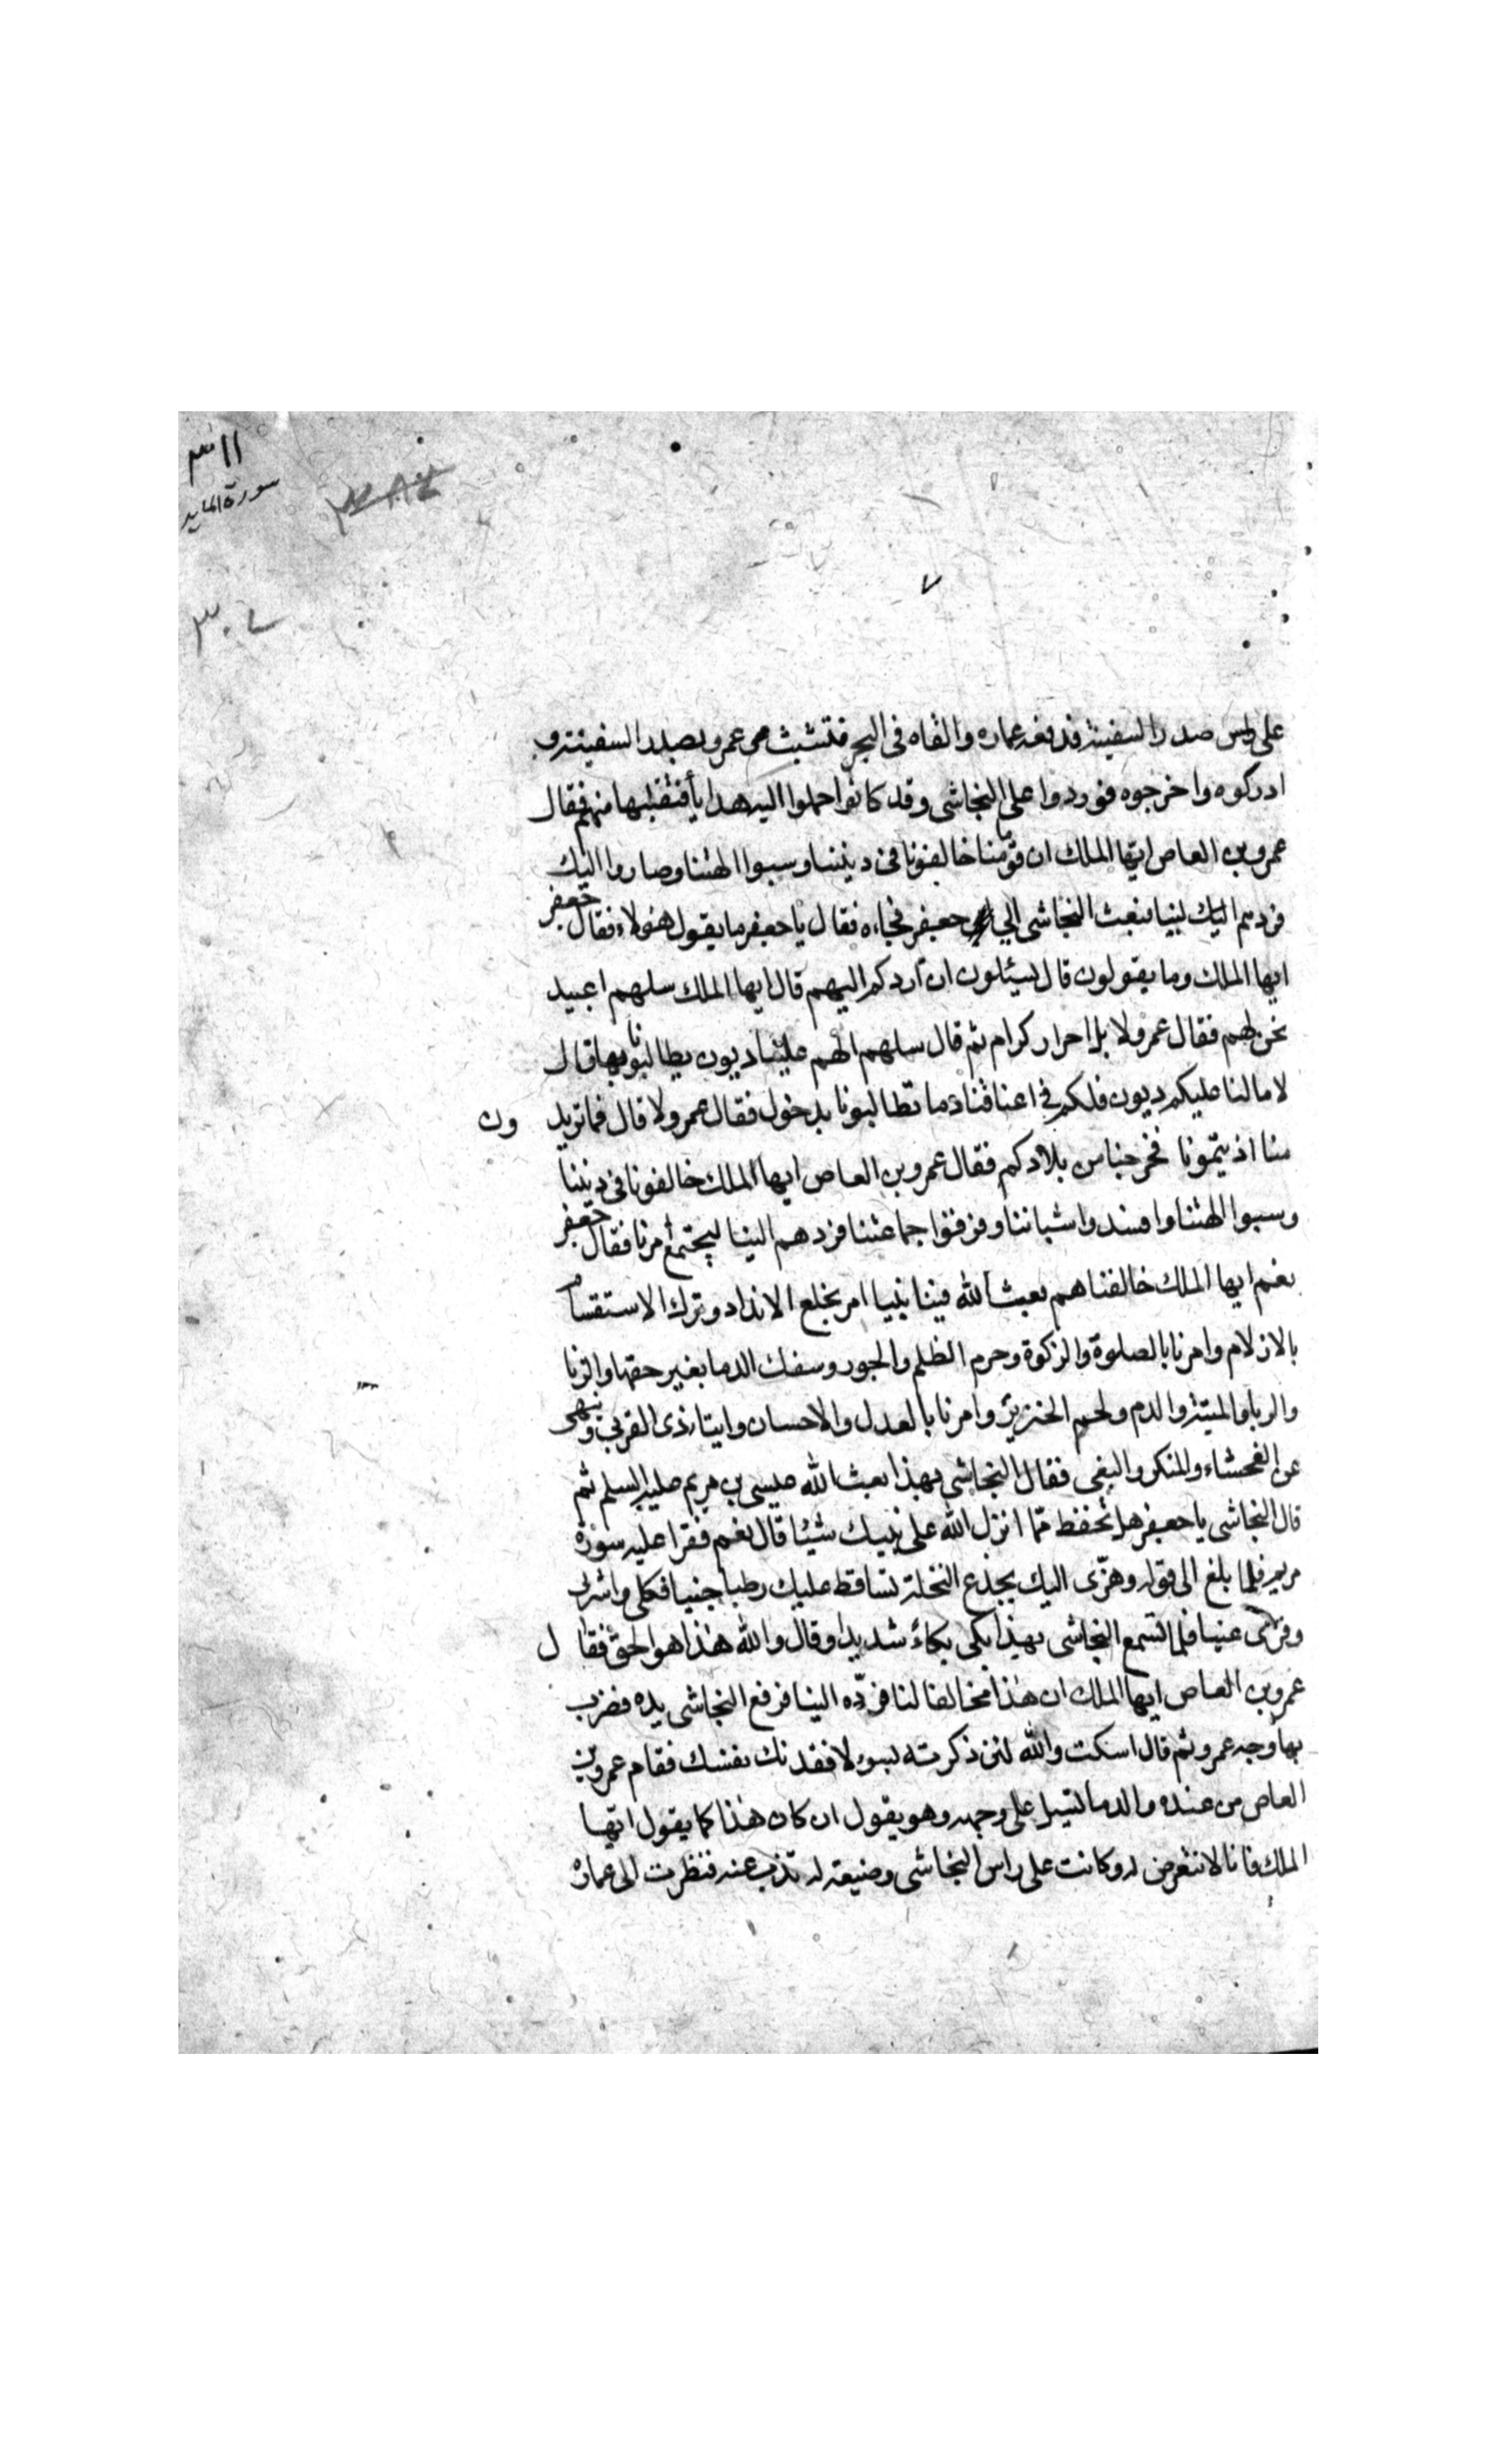 ٣١١
سورة المايد
٣٨٤
٣٠٧
٧
على راس صدر السفينة فدفعه عماره والقاه فى البحر فتشبث عمرو بصدر السفينة و
ادركوه واخرجوه فوردوا على النجاشى وقد كانوا حملوا اليه هدايا فتقبلها منهم فقال
عمرو بن العاص ايها الملك ان قوما منا خالفونا فى ديننا وسبوا الهتنا وصاروا اليك
فردهم الينا فبعث النجاشى الى جعفر فجاءه فقال يا جعفر ما يقول هؤلاء فقال جعفر
ايها الملك وما يقولون قال يسئلون ان اردكم اليهم قال ايها الملك سلهم اعبيد
نحن لهم فقال عمرو لا بل احرار كرام ثم قال سلهم الهم علينا ديون يطالبونا بها قال
لا مالنا عليكم ديون فلكم فى اعناقنا دما تطالبونا بدخول فقال عمرو لا قال فما تريد ون
منا اذيتمونا فخرجنا من بلادكم فقال عمرو بن العاص ايها الملك خالفونا فى ديننا
وسبوا الهتنا وافسدوا شباننا وفرقوا جماعتنا فردهم الينا ليجتمع امرنا فقال جعفر
نعم ايها الملك خالفناهم بعث الله فينا نبيا امر بخلع الانداد وترك الاستقسام
بالازلام وامرنا بالصلوة والزكوة وحرم الظلم والجور وسفك الدما بغير حقها والزنا
والربا والميتة والدم ولحم الخنزير وامرنا بالعدل والاحسان وايتا ذى القربى ونهى
عن الفحشاء والمنكر والبغى فقال النجاشى بهذا بعث الله عيسى بن مريم عليه السلم ثم
قال النجاشى يا جعفر هل تحفظ مما انزل الله على نبيك شيئا قال نعم فقرا عليه سورة
مريم فلما بلغ الى قوله وهزى اليك بجذع النخلة تساقط عليك رطبا جنيا فكلى واشربى
وقرى عينا فلما سمع النجاشى بهذا بكى بكاء شديدا وقال والله هذا هو الحق فقال
عمرو بن العاص ايها الملك ان هذا مخالفا لنا فرده الينا فرفع النجاشى يده فضرب
بها وجه عمرو ثم قال اسكت والله لئن ذكرته بسوء لافقدنك نفسك فقام عمرو بن
العاص من عنده والدما تسيل على وجهه وهو يقول ان كان هذا كما يقول ايها
الملك فانا لا نتعرض له وكانت على راس النجاشى وصيفة له تذب عنه فنظرت الى عمارة